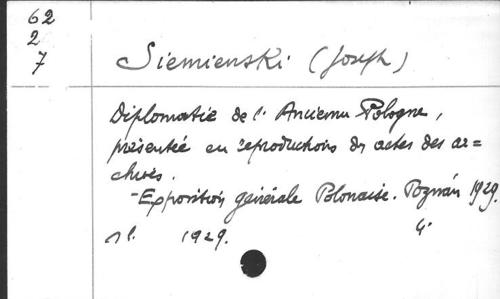 62
2
7
Siemienski (Joseph)
Diplomatie de l'Ancienne Pologne,
présentée en reproductions des actes des ar=
chives.
- Exposition générale Polonaise. Poznán 1929.
1929. 4°